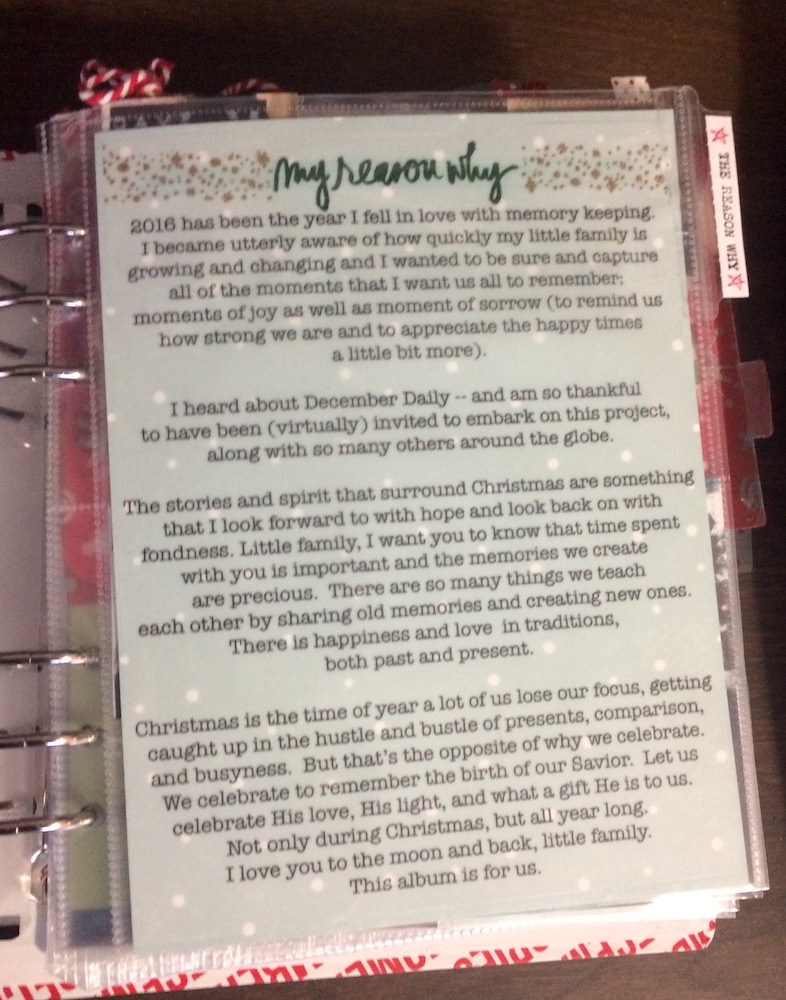 my reason why
THE REASON WHY
2016 has been the year I fell in love with memory keeping.
I became utterly aware of how quickly my little family is
growing and changing and I wanted to be sure and capture
all of the moments that I want us all to remember;
moments of joy as well as moment of sorrow (to remind us
how strong we are and to appreciate the happy times
a little bit more).
I heard about December Daily -- and am so thankful
to have been (virtually) invited to embark on this project,
along with so many others around the globe.
The stories and spirit that surround Christmas are something
that I look forward to with hope and look back on with
fondness. Little family, I want you to know that time spent
with you is important and the memories we create
are precious. There are so many things we teach
each other by sharing old memories and creating new ones.
There is happiness and love in traditions,
both past and present.
Christmas is the time of year a lot of us lose our focus, getting
caught up in the hustle and bustle of presents, comparison,
and busyness. But that's the opposite of why we celebrate.
We celebrate to remember the birth of our Savior. Let us
celebrate His love, His light, and what a gift He is to us.
Not only during Christmas, but all year long.
I love you to the moon and back, little family.
This album is for us.